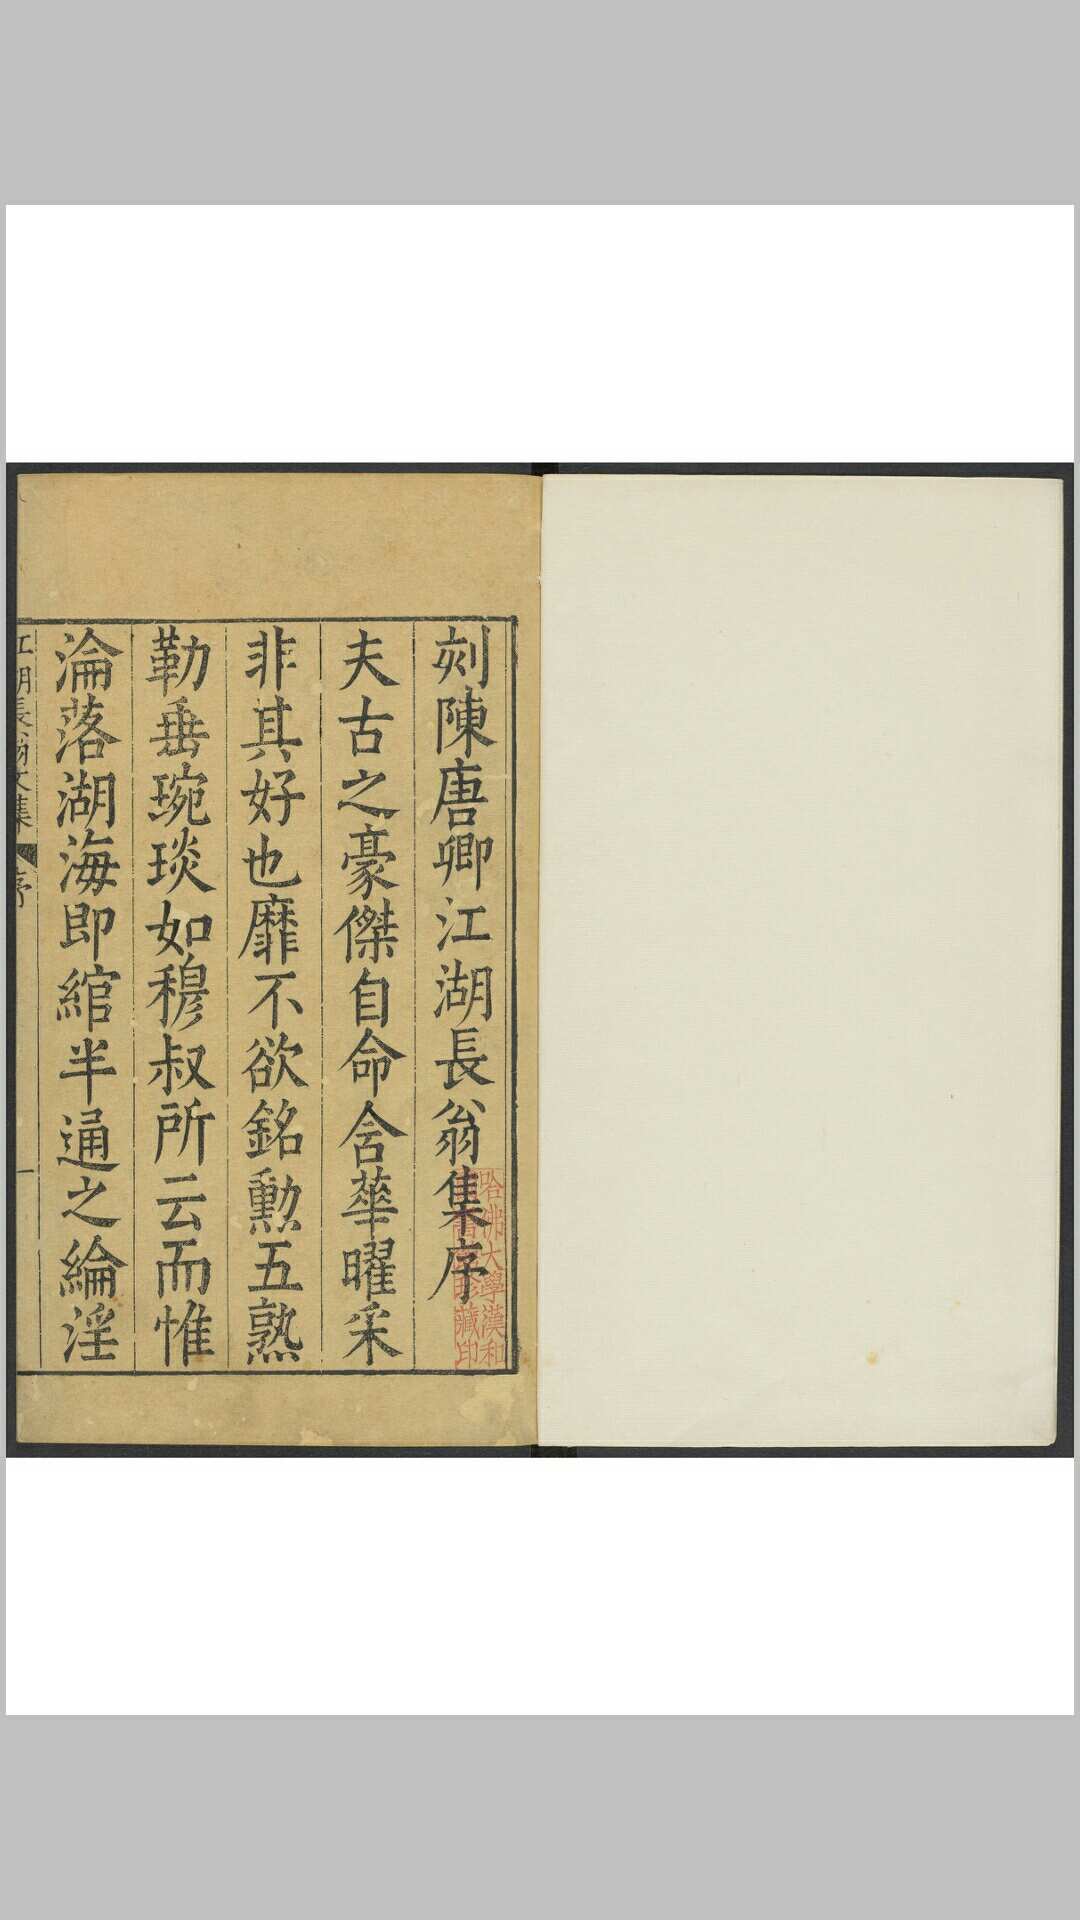 刻陳唐卿江湖長翁集序
夫古之豪傑自命含華曜采
非其好也靡不欲銘勳五熟
勒垂琬琰如穆叔所云而惟
淪落湖海即綰半通之綸淫
江湖長翁文集
序
一
哈佛大學漢和
圖書館珍藏印